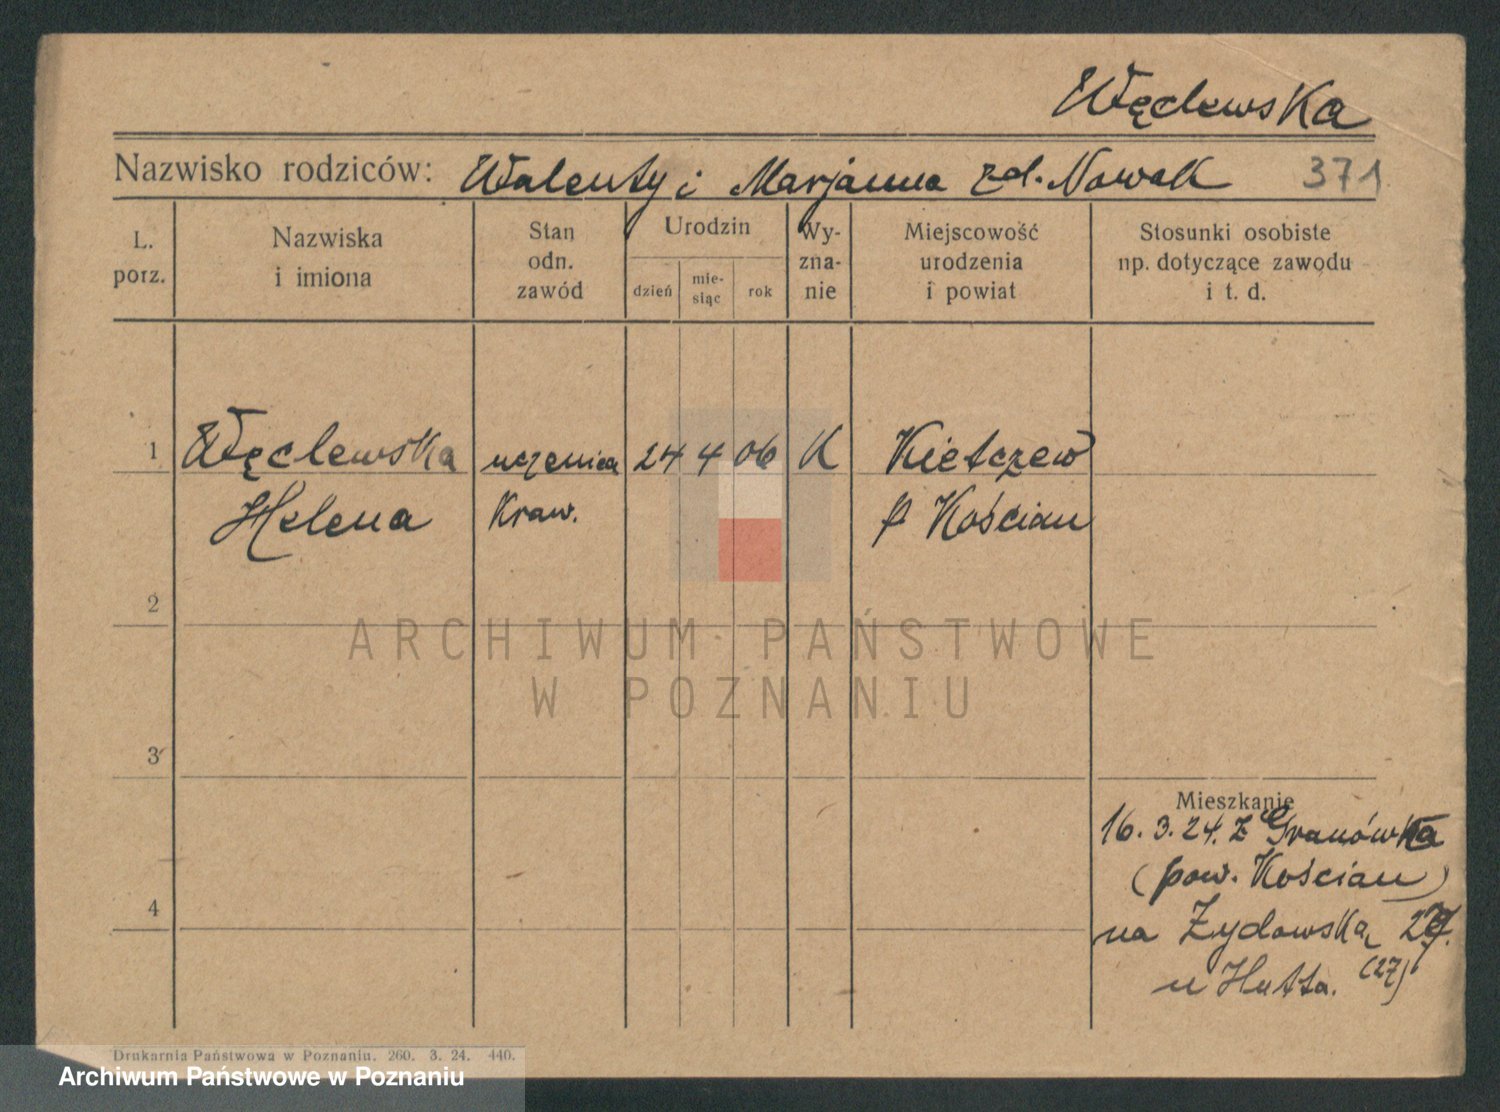 Węclewska
Nazwisko rodziców: Walenty i Marjanna zd. Nowak 371
L. porz.
Nazwiska i imiona
Stan odn. zawód
Urodzin
dzień
mie-siąc
rok
Wy-zna-nie
Miejscowość urodzenia i powiat
Stosunki osobiste np. dotyczące zawodu i t. d.
1 Węclewska uczenica 24 4 06 K Kiełczew
Helena Kraw. p Kościan
2
ARCHIWUM PAŃSTWOWE
W POZNANIU
3
Mieszkanie
16. 3. 24. z Granówka
(pow. Kościan)
4
na Żydowską 27.
u Hutta. (27)
Drukarnia Państwowa w Poznaniu. 260. 3. 24. 440.
Archiwum Państwowe w Poznaniu